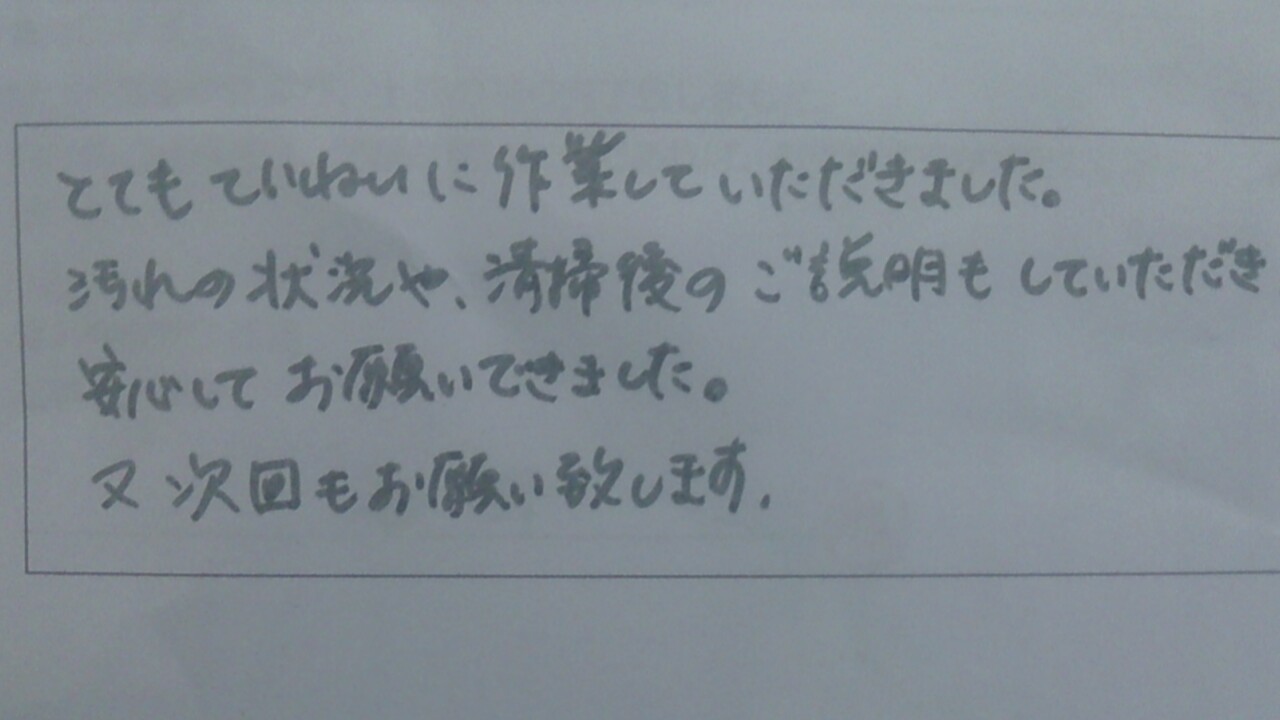 とてもていねいに作業していただきました。
汚れの状況や、清掃後のご説明もしていただき
安心してお願いできました。
又次回もお願い致します。